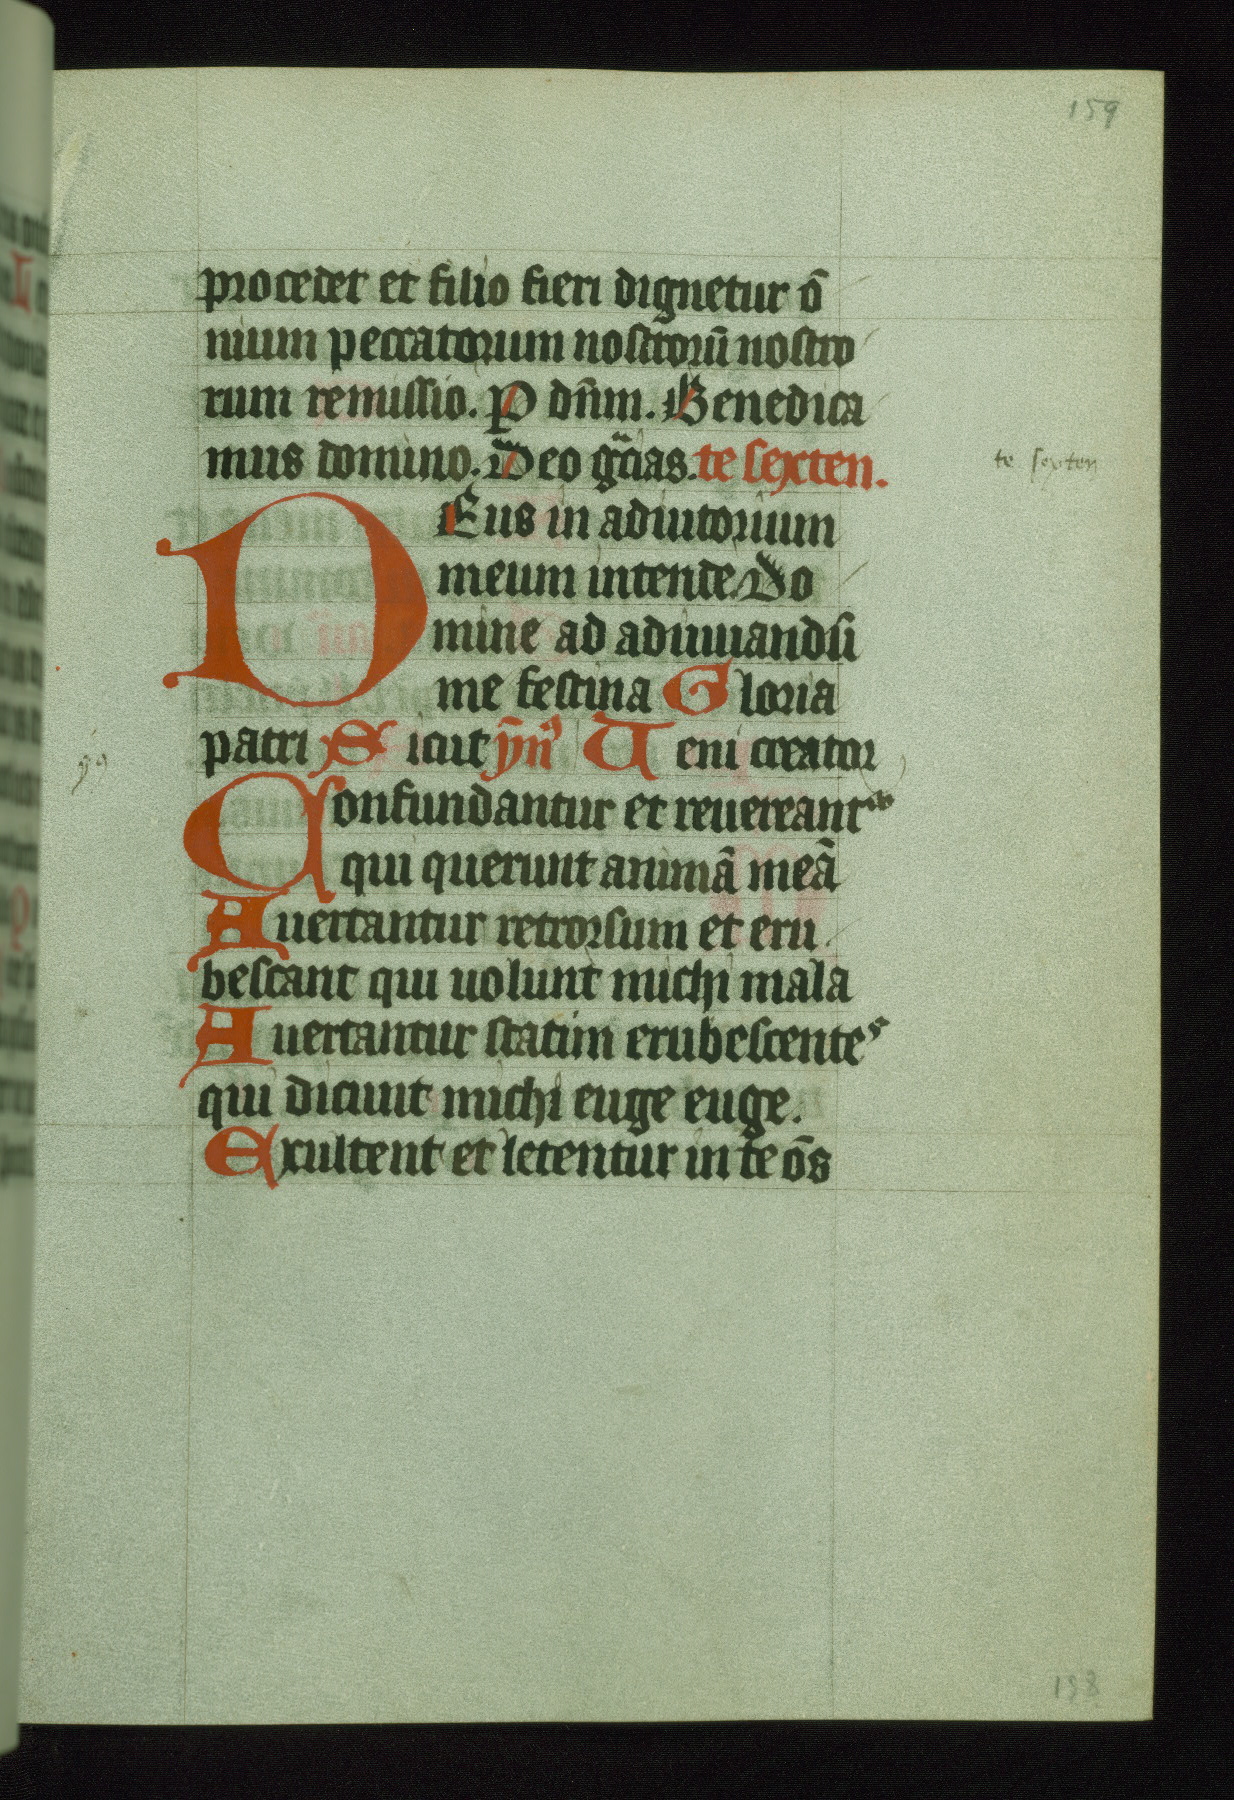 159
procedet et filio fieri dignetur õ
nium peccatorum nostrorũ nostro
rum remissio. P dñm. Benedica
mus domino. Deo gr̃cias. te sexten.
te sexten
DEus in adiutorium
meum intende Do
mine ad adiuuandũ
me festina Gloria
patri Sicut ỹn⁹ Ueni creator
Confundantur et reuereantur
qui querunt animã meã
Auertantur retrorsum et eru
bescant qui uolunt michi mala
Auertantur statim erubescentes
qui dicunt michi euge euge.
Exultent et letentur in te õs
198